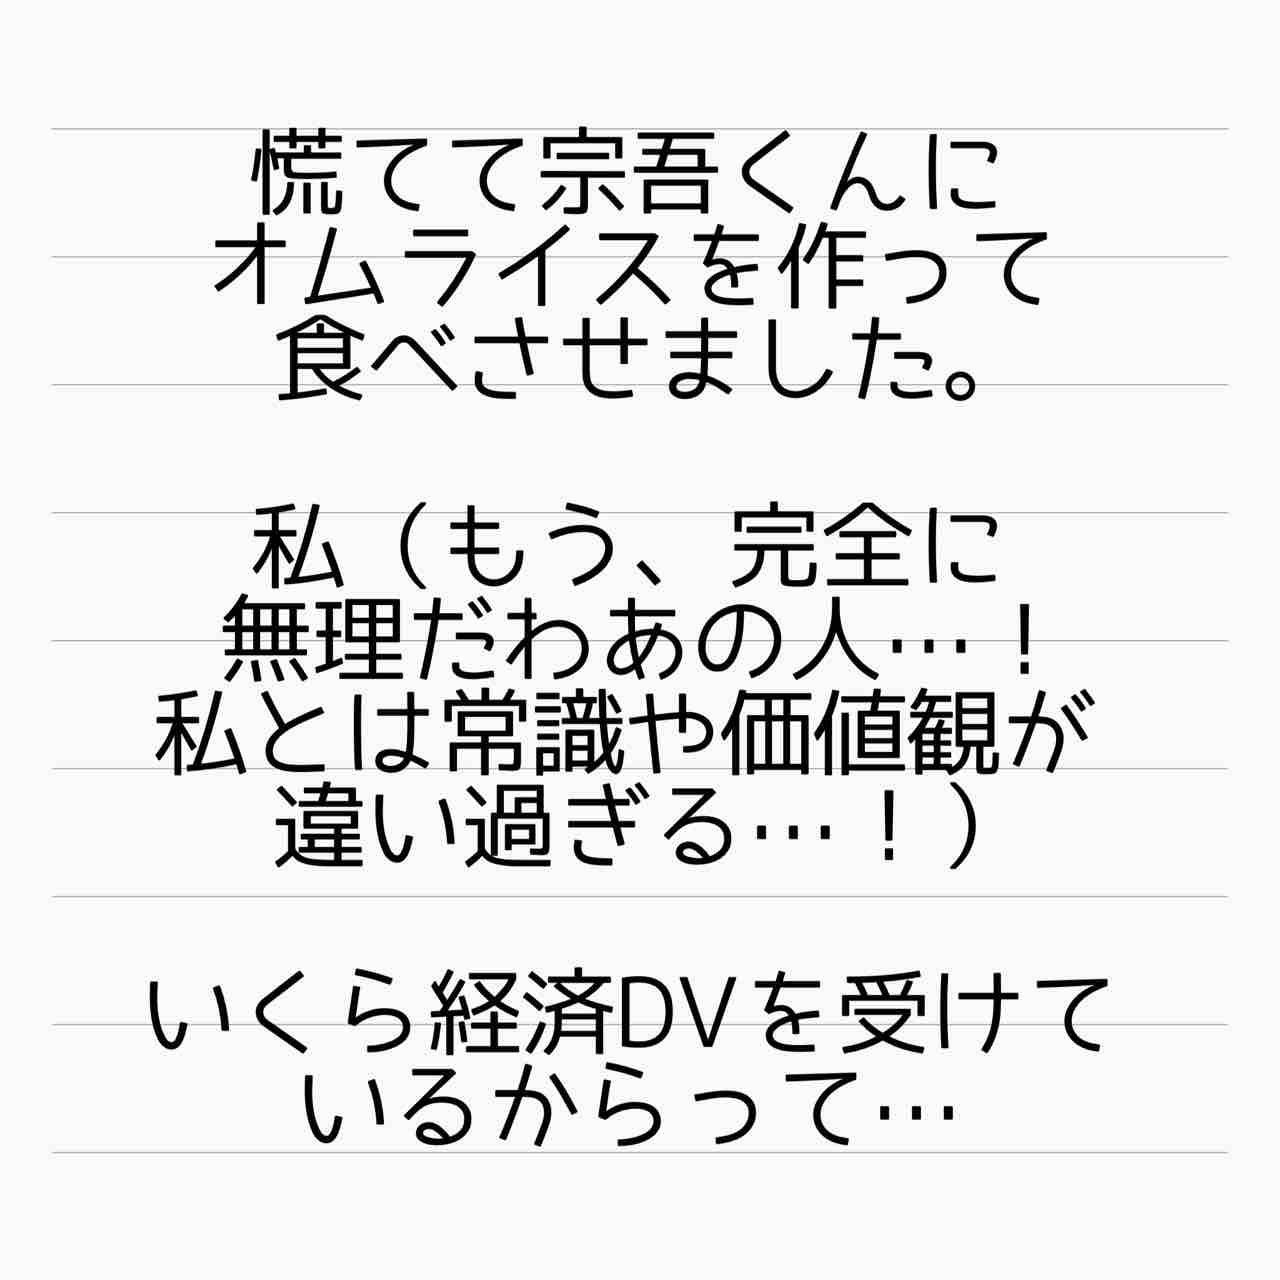 慌てて宗吾くんに
オムライスを作って
食べさせました。
私（もう、完全に
無理だわあの人…！
私とは常識や価値観が
違い過ぎる…！）
いくら経済DVを受けて
いるからって…